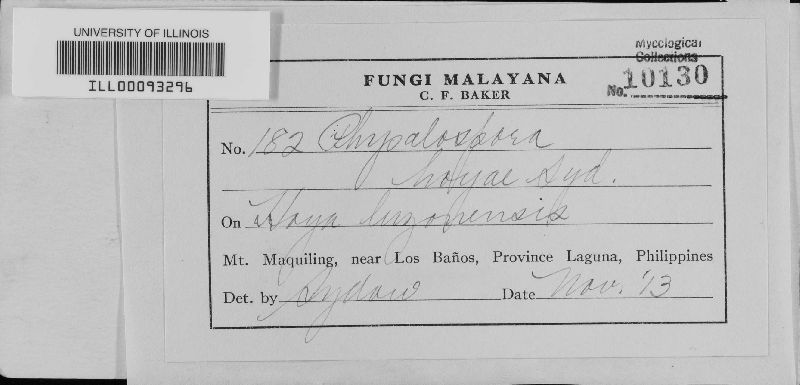 UNIVERSITY OF ILLINOIS
ILL00093296
Mycological
Collections
No. 10130
FUNGI MALAYANA
C. F. BAKER
No. 182 Physalospora
hoyae Syd.
On Hoya luzonensis
Mt. Maquiling, near Los Baños, Province Laguna, Philippines
Det. by Sydow Date Nov. '13